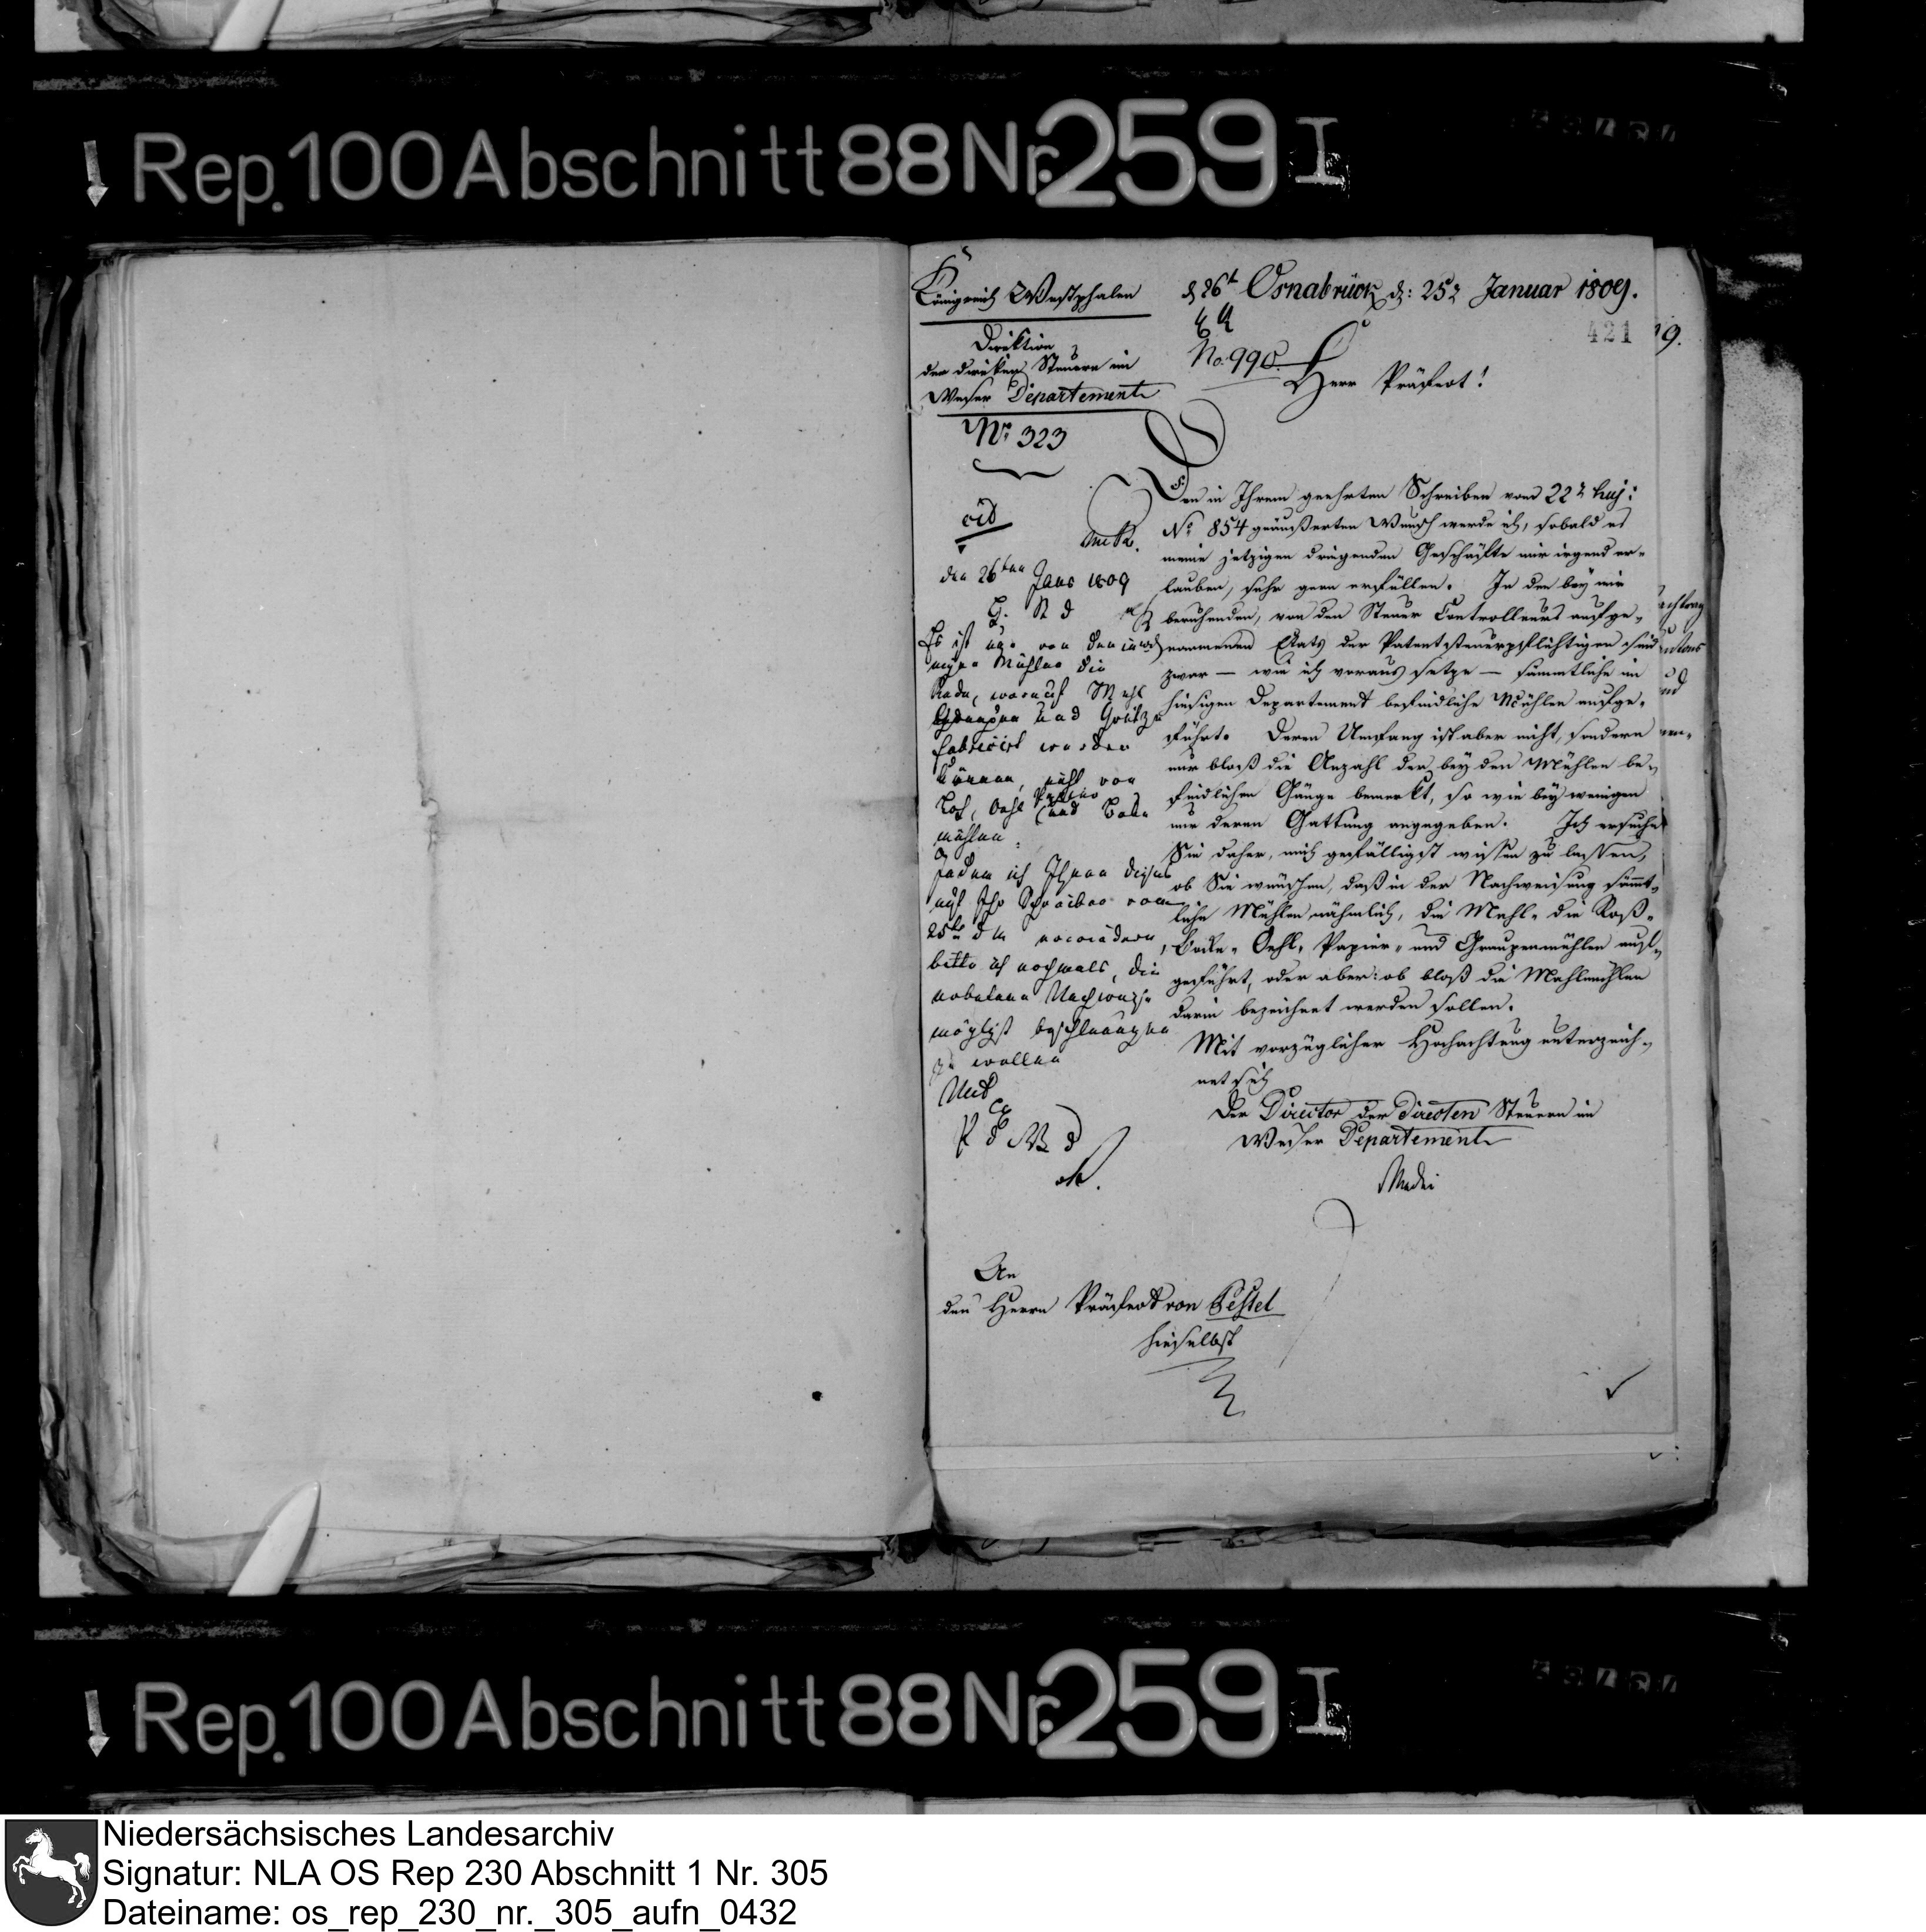 Rep. 100 Abschnitt 88 Nr. 259 I
Königreich Westphalen
Direktion
der direkten Steuern im
Weser Departement
No 323
Osnabrück d: 25 Januar 1809.
No. 990.
421
9.
Herr Präfect!
Den in Ihrem geehrten Schreiben vom 22 huj:
No 854 geäußerten Wunsch werde ich, sobald es
meine jetzigen dringenden Geschäfte mir irgend er-
lauben, sehr gern erfüllen. In den bey mir
beruhenden, von den Steuer Controlleurs aufge-
nommenen Etats der Patentsteuerpflichtigen sind
zwar — wie ich voraus setze — sämmtliche im
hiesigen Departement befindliche Mühlen aufge-
führt. Deren Umfang ist aber nicht, sondern
nur bloß die Anzahl der bey den Mühlen be-
findlichen Gänge bemerkt, so wie bey wenigen
nur deren Gattung angegeben. Ich ersuche
Sie daher, mich gefälligst wissen zu lassen,
ob Sie wünschen, daß in der Nachweisung sämmt-
liche Mühlen nähmlich, die Mehl- die Roß-
Bocke- Oehl- Papier- und Graupenmühlen auf-
geführt, oder aber: ob bloß die Mahlmühlen
darin bezeichnet werden sollen.
Mit vorzüglicher Hochachtung unterzeich-
net sich
Der Director der directen Steuern im
Weser Departement
den 26ten Janr 1809
Es ist nur von den
Mühlen die
Rede, worauf Mehl
Graupen und Grütze
fabricirt werden
können, nicht von
Loh, Oehl und Boke
mühlen.
Indem ich Ihnen dieses
auf Ihr Schreiben vom
25ten erwiedere,
bitte ich nochmals, die
erbetene Nachweise
möglichst beschleunigen
zu wollen
An
den Herrn Präfect von Pestel
hieselbst
Rep. 100 Abschnitt 88 Nr. 259 I
Niedersächsisches Landesarchiv
Signatur: NLA OS Rep 230 Abschnitt 1 Nr. 305
Dateiname: os_rep_230_nr._305_aufn_0432